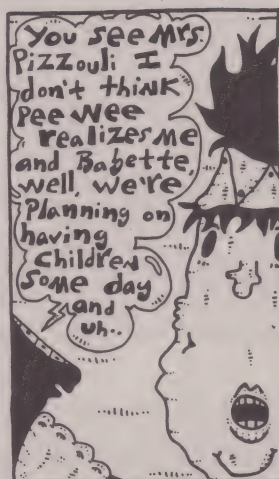 You see Mrs.
Pizzouli I
don't think
Pee Wee
realizes me
and Babette,
well, we're
Planning on
having
Children
Some day
and
uh..